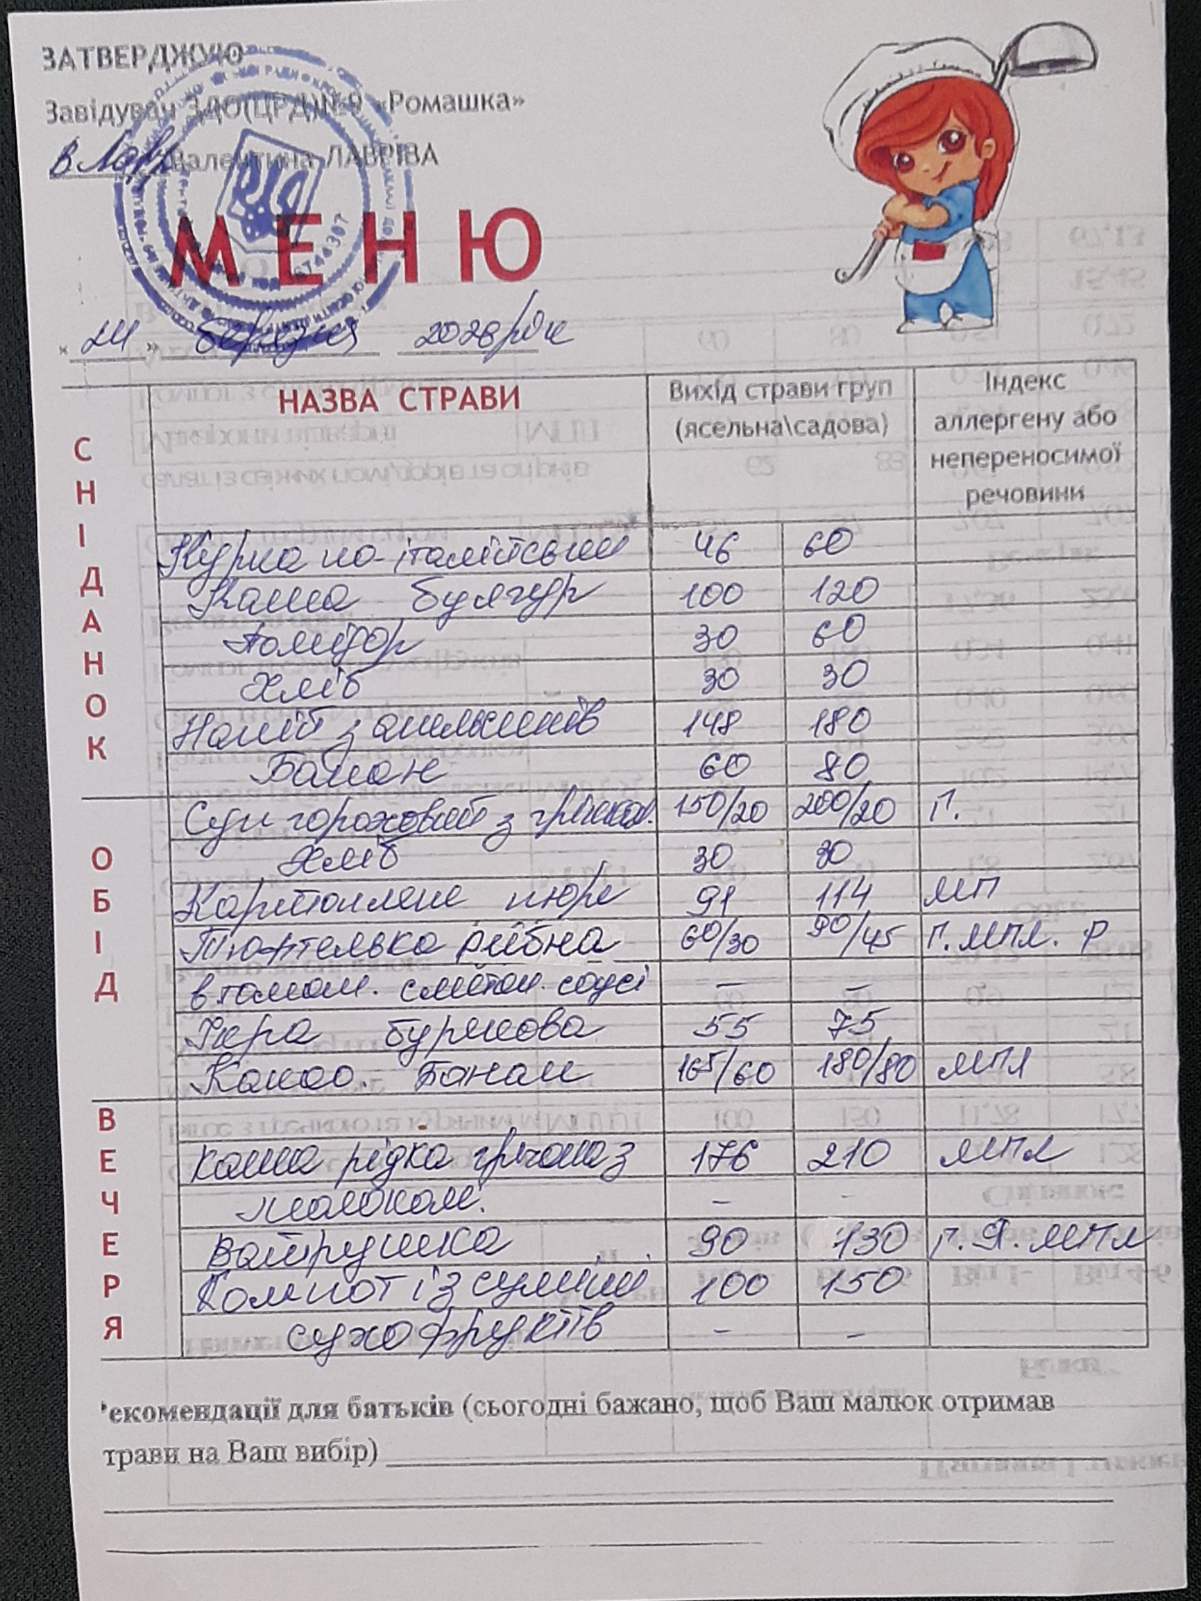 ЗАТВЕРДЖУЮ
Завідувач ЗДО(ЦРД)№9 «Ромашка»
Валентина ЛАВРІВА
МЕНЮ
« 24 » березня 2026 рік
СНІДАНОК
НАЗВА СТРАВИ Вихід страви груп (ясельна\садова) Індекс аллергену або непереносимої речовини
Курка по-італійськи 46 60
Каша булгур 100 120
Помідор 30 60
Хліб 30 30
Напій з апельсинів 148 180
Банан 60 80
ОБІД
Суп гороховий з грінкам. 150/20 200/20 Г.
Хліб 30 30
Картопляне пюре 91 114 МП
Тюфтелька рибна 60/30 90/45 Г. МПЛ. Р
в томат. сметан. соусі – –
Ікра бурякова 55 75
Какао. Банан 165/60 180/80 МПЛ
ВЕЧЕРЯ
Каша рідка гречана з 176 210 МПЛ
молоком. – –
Ватрушка 90 130 Г. Я. МПЛ
Компот із суміші 100 150
сухофруктів – –
екомендації для батьків (сьогодні бажано, щоб Ваш малюк отримав
трави на Ваш вибір)